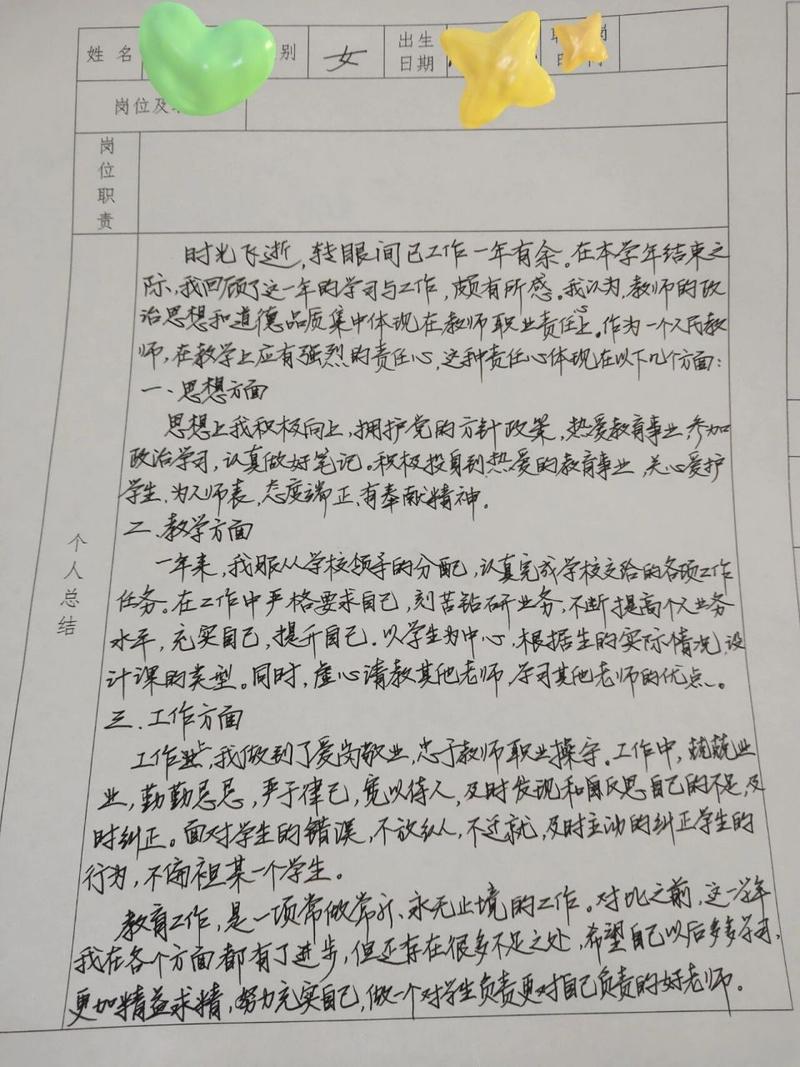 姓名 别 女 出生日期
岗位及
岗位职责
个人总结
时光飞逝，转眼间已工作一年有余。在本学年结束之
际，我回顾了这一年的学习与工作，颇有所感。我认为，教师的政
治思想和道德品质集中体现在教师职业责任心上。作为一个人民教
师，在教学上应有强烈的责任心，这种责任心体现在以下几个方面：
一、思想方面
思想上我积极向上，拥护党的方针政策，热爱教育事业，参加
政治学习，认真做好笔记。积极投身到热爱的教育事业，关心爱护
学生，为人师表，态度端正，有奉献精神。
二、教学方面
一年来，我服从学校领导的分配，认真完成学校交给的各项工作
任务。在工作中严格要求自己，刻苦钻研业务，不断提高个人业务
水平，充实自己，提升自己。以学生为中心，根据生的实际情况，设
计课的类型。同时，虚心请教其他老师，学习其他老师的优点。
三、工作方面
工作上，我做到了爱岗敬业，忠于教师职业操守。工作中，兢兢业
业，勤勤恳恳，严于律己，宽以待人，及时发现和反思自己的不足，及
时纠正。面对学生的错误，不放纵，不迁就，及时主动的纠正学生的
行为，不偏袒某一个学生。
教育工作，是一项常做常新、永无止境的工作。对比之前，这一学年
我在各个方面都有了进步，但还存在很多不足之处，希望自己以后多多学习，
更加精益求精，努力充实自己，做一个对学生负责更对自己负责的好老师。